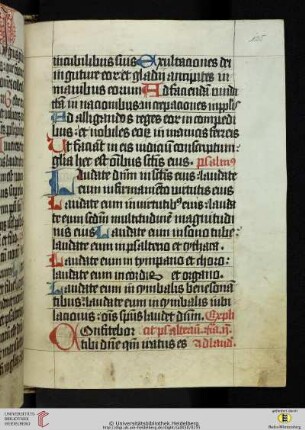 in cubilibus suis Exultaciones dei
in guture eorum et gladii ancipites in
manibus eorum Ad faciendam vindic
tam in nacionibus increpaciones in pplis
Ad alligandos reges eorum in compedi
bus : et nobiles eorum in manicis ferreis
Ut faciant in eis iudicium conscriptum :
glia hec est omnibus sctis eius. psalmus
Laudate dnm in sctis eius : laudate
eum in firmamento virtutis eius
Laudate eum in virtutibus eius : lauda
te eum scdm multitudinem magnitudi
nis eius Laudate eum in sono tube :
laudate eum in psalterio et cythara.
Laudate eum in tympano et choro :
laudate eum in cordis et organo.
Laudate eum in cymbalis benesona
tibus : laudate eum in cymbalis iubi
lacionis : ois spus laudet dnm. Explic
Confitebor
tibi dne qm iratus es Ad laud.
UNIVERSITÄTS-
BIBLIOTHEK
HEIDELBERG
© Universitätsbibliothek Heidelberg
Baden-Württemberg